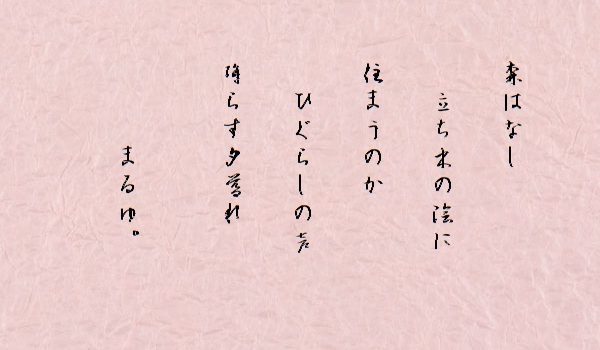 森はなし
立ち木の陰に
住まうのか
ひぐらしの声
降らす夕暮れ
まるゆ。